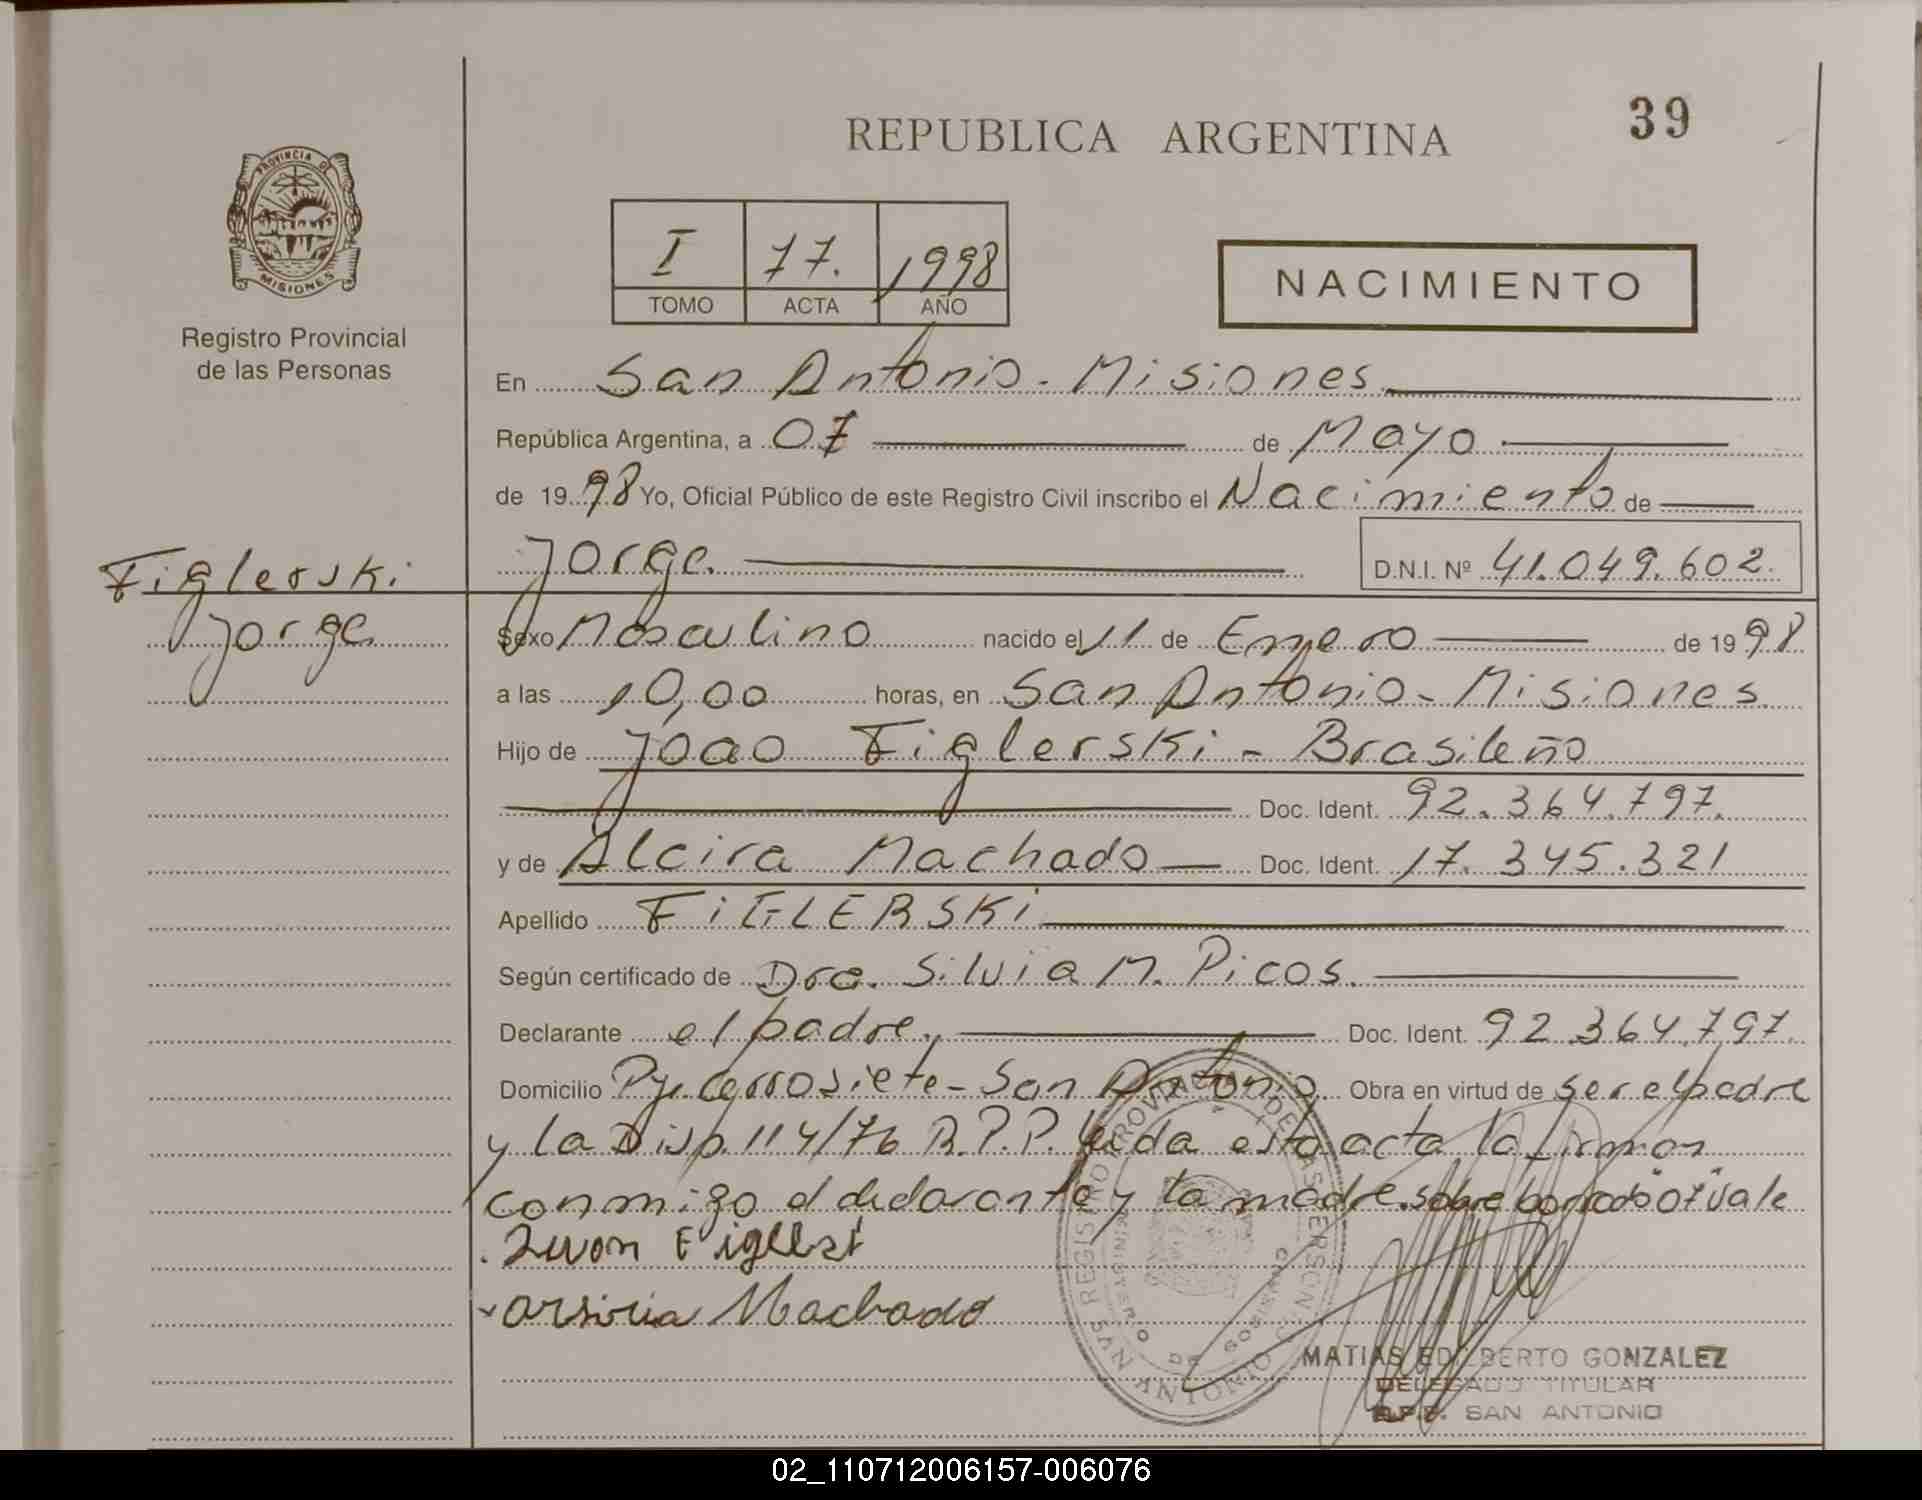 39
REPUBLICA ARGENTINA
PROVINCIA DE
MISIONES
Registro Provincial
de las Personas
I 77. 1998
TOMO ACTA AÑO
NACIMIENTO
En San Antonio - Misiones
República Argentina, a 07 de Mayo
de 1998 Yo, Oficial Público de este Registro Civil inscribo el Nacimiento de
Jorge D.N.I. Nº 41.049.602.
Figlerski
Jorge
Sexo Masculino nacido el 11 de Enero de 1998
a las 10,00 horas, en San Antonio - Misiones
Hijo de Joao Figlerski - Brasileño
Doc. Ident. 92.364.797.
y de Alcira Machado Doc. Ident. 17.345.321
Apellido FIGLERSKI
Según certificado de Dra. Silvia M. Picos.
Declarante el padre, Doc. Ident. 92.364.797.
Domicilio Pje. Cerrosiete - San Antonio Obra en virtud de ser el padre
y la Disp. 114/76 R.P.P. leida esta acta la firman
conmigo el declarante y la madre. sobre borrado "07" vale
Machado
REGISTRO PROVINCIAL DE LAS PERSONAS
SAN ANTONIO
MINISTERIO DE GOBIERNO
MATIAS EDILBERTO GONZALEZ
DELEGADO TITULAR
R.P.P. SAN ANTONIO
02_110712006157-006076